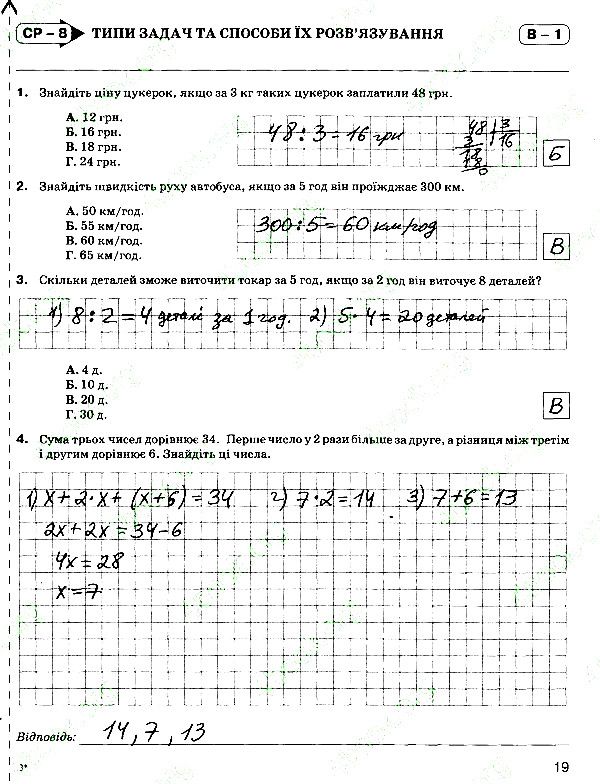 СР – 8 ТИПИ ЗАДАЧ ТА СПОСОБИ ЇХ РОЗВ'ЯЗУВАННЯ В – 1
1. Знайдіть ціну цукерок, якщо за 3 кг таких цукерок заплатили 48 грн.
А. 12 грн.
Б. 16 грн.
В. 18 грн.
Г. 24 грн.
48 : 3 = 16 грн
48 3
3 16
18
18
0
Б
2. Знайдіть швидкість руху автобуса, якщо за 5 год він проїжджає 300 км.
А. 50 км/год.
Б. 55 км/год.
В. 60 км/год.
Г. 65 км/год.
300 : 5 = 60 км/год
В
3. Скільки деталей зможе виточити токар за 5 год, якщо за 2 год він виточує 8 деталей?
1) 8 : 2 = 4 деталі за 1 год. 2) 5 · 4 = 20 деталей
А. 4 д.
Б. 10 д.
В. 20 д.
Г. 30 д.
В
4. Сума трьох чисел дорівнює 34. Перше число у 2 рази більше за друге, а різниця між третім
і другим дорівнює 6. Знайдіть ці числа.
1) x + 2 · x + (x + 6) = 34 2) 7 · 2 = 14 3) 7 + 6 = 13
2x + 2x = 34 – 6
4x = 28
x = 7
Відповідь: 14, 7, 13
3* 19